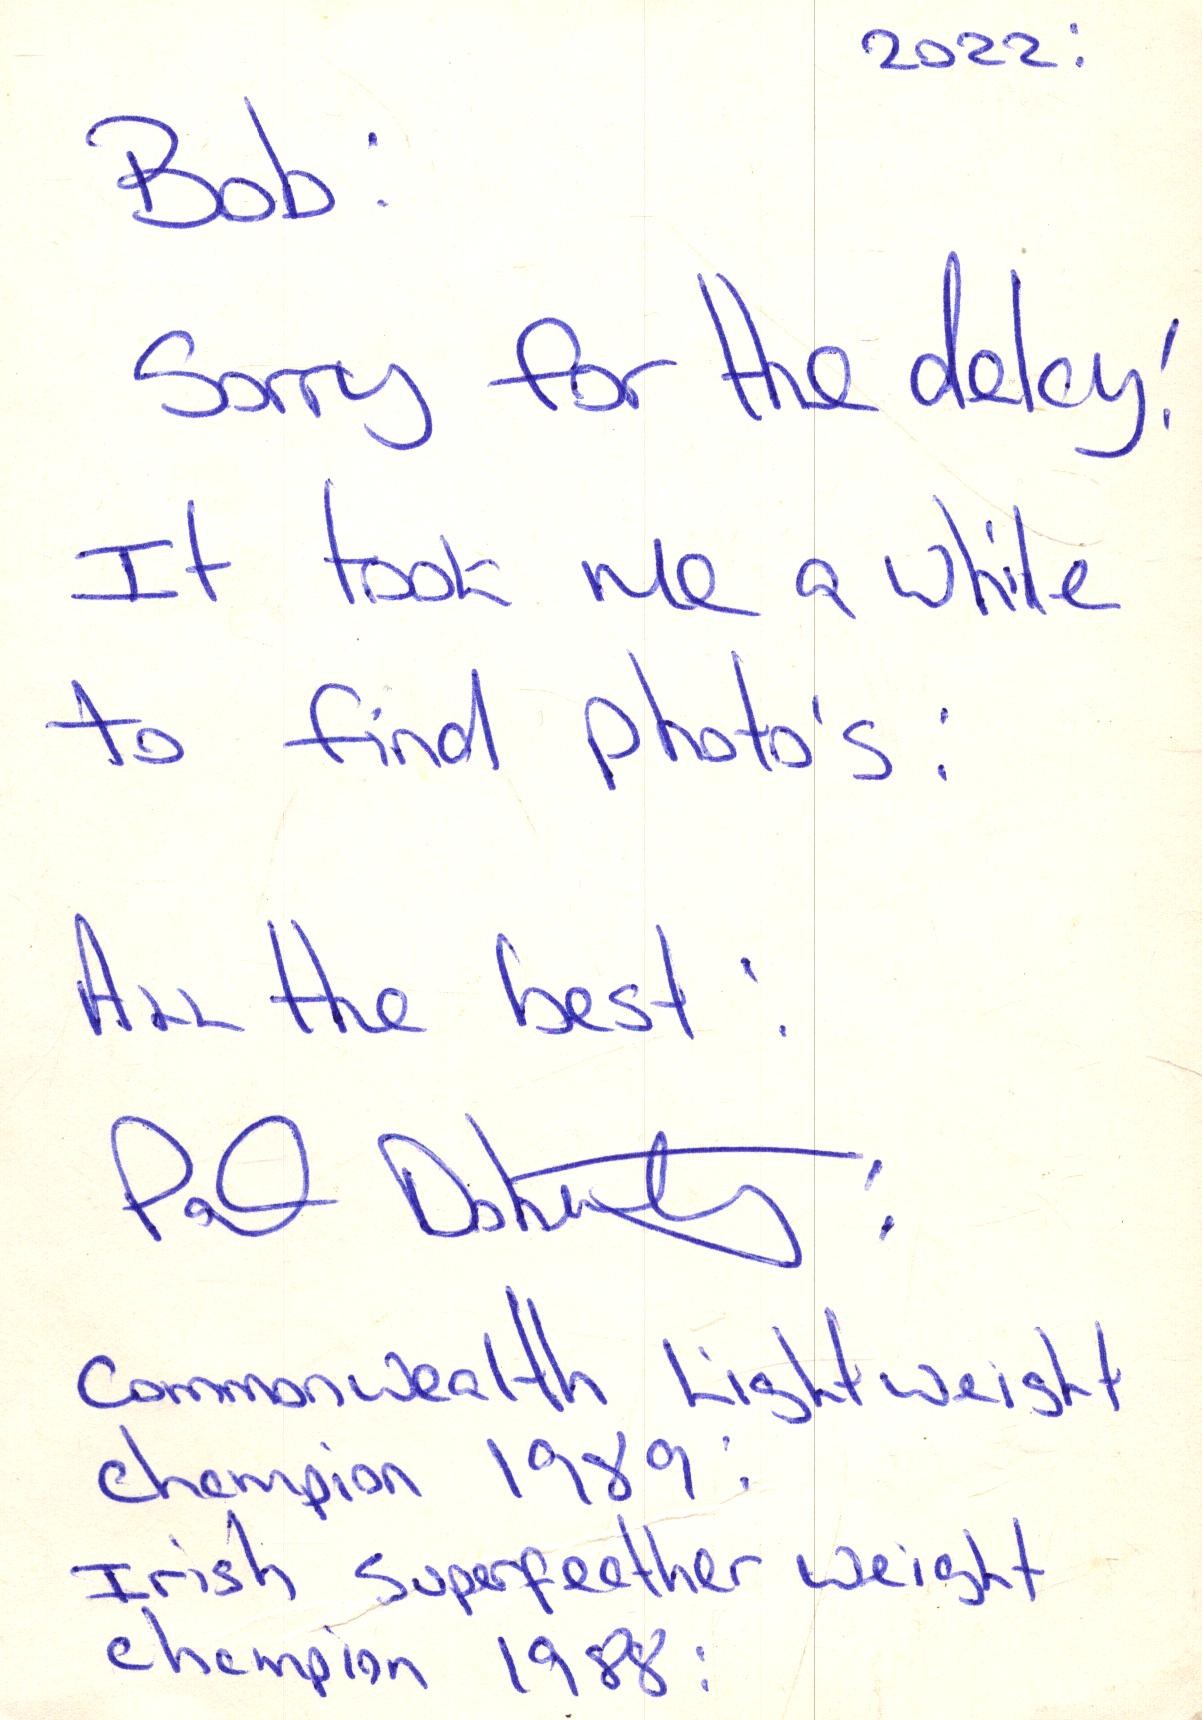 2022:
Bob:
Sorry for the delay!
It took me a while
to find photo's:
All the best:
Paul Doherty:
Commonwealth Lightweight
champion 1989:
Irish superfeather weight
champion 1988: